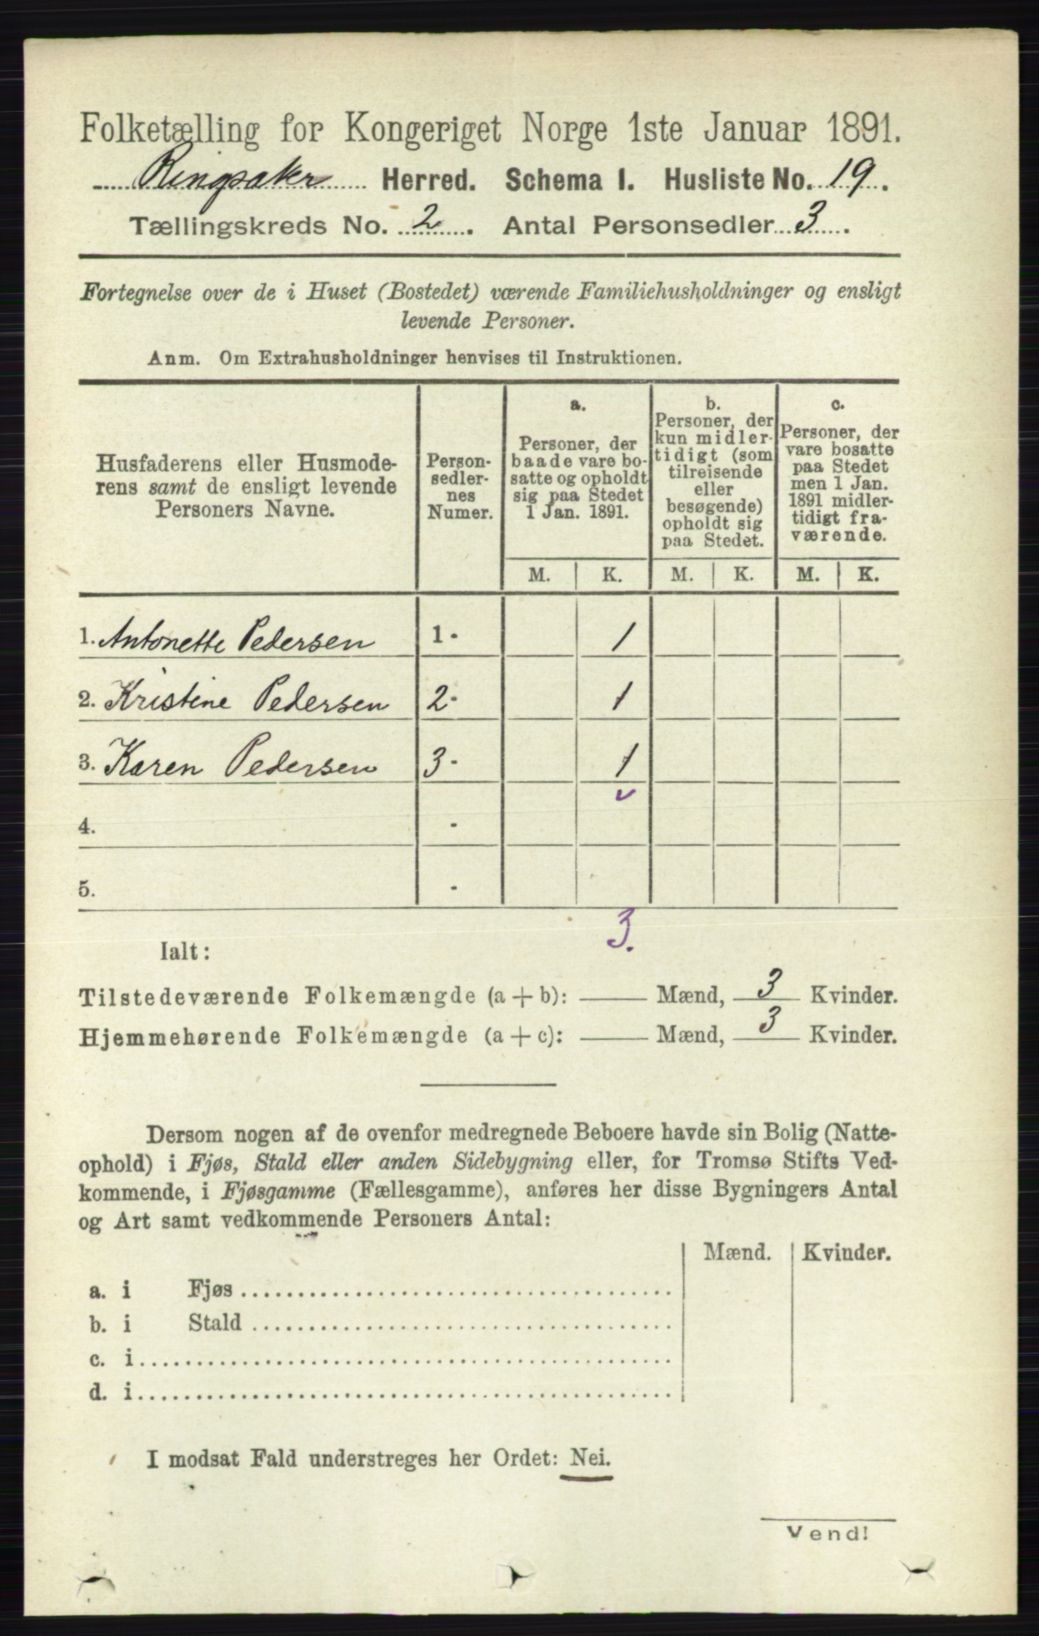 Folketælling for Kongeriget Norge 1ste Januar 1891.
Ringsaker Herred. Schema I. Husliste No. 19.
Tællingskreds No. 2. Antal Personsedler 3.
Fortegnelse over de i Huset (Bostedet) værende Familiehusholdninger og ensligt
levende Personer.
Anm. Om Extrahusholdninger henvises til Instruktionen.
Husfaderens eller Husmode-
rens samt de ensligt levende
Personers Navne.
Person-
sedler-
nes
Numer.
a.
Personer, der
baade vare bo-
satte og opholdt
sig paa Stedet
1 Jan. 1891.
b.
Personer, der
kun midler-
tidigt (som
tilreisende
eller
besøgende)
opholdt sig
paa Stedet.
c.
Personer, der
vare bosatte
paa Stedet
men 1 Jan.
1891 midler-
tidigt fra-
værende.
M. K. M. K. M. K.
1. Antonette Pedersen 1- 1
2. Kristine Pedersen 2- 1
3. Karen Pedersen 3- 1
4. -
5. -
3.
Ialt:
Tilstedeværende Folkemængde (a + b): Mænd, 3 Kvinder.
Hjemmehørende Folkemængde (a + c): Mænd, 3 Kvinder.
Dersom nogen af de ovenfor medregnede Beboere havde sin Bolig (Natte-
ophold) i Fjøs, Stald eller anden Sidebygning eller, for Tromsø Stifts Ved-
kommende, i Fjøsgamme (Fællesgamme), anføres her disse Bygningers Antal
og Art samt vedkommende Personers Antal:
Mænd. Kvinder.
a. i Fjøs
b. i Stald
c. i
d. i
I modsat Fald understreges her Ordet: Nei.
Vend!